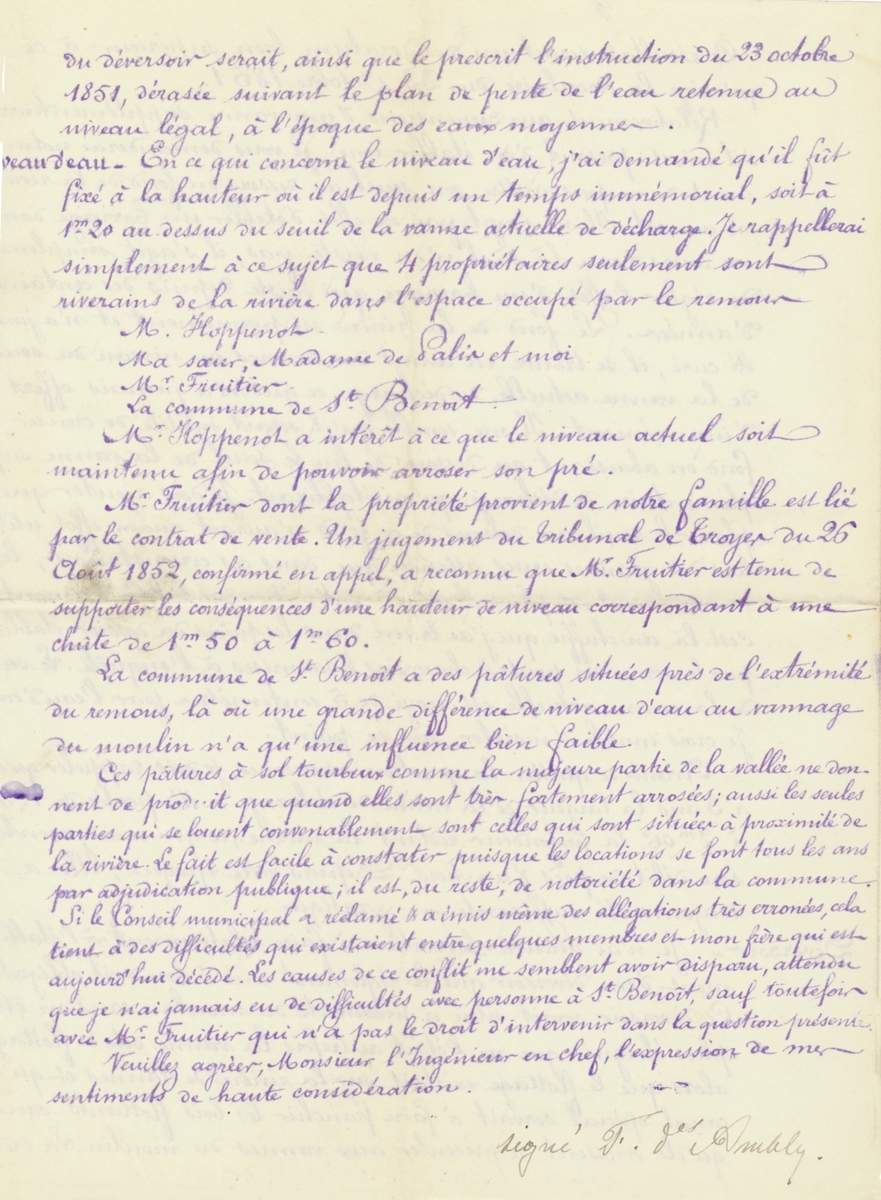 du déversoir serait, ainsi que le prescrit l'instruction du 23 octobre
1851, dérasée suivant le plan de pente de l'eau retenue au
niveau légal, à l'époque des eaux moyennes.
veau d'eau - En ce qui concerne le niveau d'eau, j'ai demandé qu'il fût
fixé à la hauteur où il est depuis un temps immémorial, soit à
1m20 au dessus du seuil de la vanne actuelle de décharge. Je rappellerai
simplement à ce sujet que 4 propriétaires seulement sont
riverains de la rivière dans l'espace occupé par le remous
M. Hoppenot
Ma sœur, Madame de Palis et moi
Mr. Fruitier
La commune de St. Benoît
Mr. Hoppenot a intérêt à ce que le niveau actuel soit
maintenu afin de pouvoir arroser son pré.
Mr. Fruitier dont la propriété provient de notre famille est lié
par le contrat de vente. Un jugement du tribunal de Troyes du 26
Août 1852, confirmé en appel, a reconnu que Mr. Fruitier est tenu de
supporter les conséquences d'une hauteur de niveau correspondant à une
chûte de 1m50 à 1m60.
La commune de St. Benoît a des pâtures situées près de l'extrémité
du remous, là où une grande différence de niveau d'eau au vannage
du moulin n'a qu'une influence bien faible.
Ces pâtures à sol tourbeux comme la majeure partie de la vallée ne don-
nent de produit que quand elles sont très fortement arrosées; aussi les seules
parties qui se louent convenablement sont celles qui sont situées à proximité de
la rivière. Le fait est facile à constater puisque les locations se font tous les ans
par adjudication publique; il est, du reste, de notoriété dans la commune.
Si le Conseil municipal a réclamé & a émis même des allégations très erronées, cela
tient à des difficultés qui existaient entre quelques membres et mon frère qui est
aujourd'hui décédé. Les causes de ce conflit me semblent avoir disparu, attendu
que je n'ai jamais eu de difficultés avec personne à St. Benoît, sauf toutefois
avec Mr. Fruitier qui n'a pas le droit d'intervenir dans la question présente.
Veuillez agréer, Monsieur l'Ingénieur en chef, l'expression de mes
sentiments de haute considération.
signé F. des Ambly.